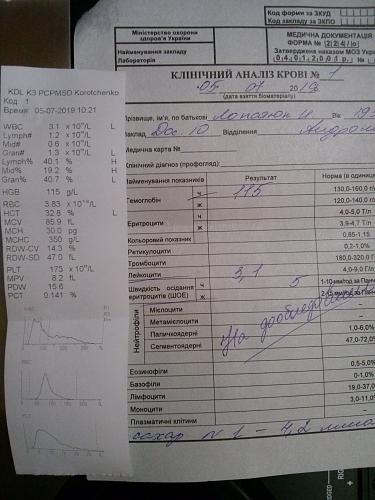 KDL K3 PCPM5D Korotchenko
Код: 1
Время: 05-07-2019 10:21
WBC 3.1 x 10⁹/L L
Lymph# 1.2 x 10⁹/L
Mid# 0.6 x 10⁹/L
Gran# 1.3 x 10⁹/L L
Lymph% 40.1 % H
Mid% 19.2 % H
Gran% 40.7 % L
HGB 115 g/L
RBC 3.83 x 10¹²/L
HCT 32.8 % L
MCV 85.9 fL
MCH 30.0 pg
MCHC 350 g/L
RDW-CV 14.3 %
RDW-SD 47.0 fL
PLT 173 x 10⁹/L
MPV 8.2 fL
PDW 15.6
PCT 0.141 %
WBC
RBC
PLT
Код форми за ЗКУД
Код закладу за ЗКПО
Міністерство охорони
здоров'я України
Найменування закладу
Лабораторія
МЕДИЧНА ДОКУМЕНТАЦІЯ
ФОРМА № 224/о
Затверджена наказом МОЗ України
04.01.2001 р. №
КЛІНІЧНИЙ АНАЛІЗ КРОВІ № 1
05 07 2019
(дата взяття біоматеріалу)
Прізвище, ім'я, по батькові
Заклад 10 Відділення
Медична карта №
Клінічний діагноз (профогляд):
Найменування показників Результат Норма (в одиницях
Гемоглобін ч 115 130,0-160,0 г/л
ж 120,0-140,0 г/л
Еритроцити ч 4,0-5,0 Т/л
ж 3,9-4,7 Т/л
Кольоровий показник 0,85-1,15
Ретикулоцити 0,2-1,0%
Тромбоцити 180,0-320,0 Г
Лейкоцити 3,1 4,0-9,0 Г/л
Швидкість осідання
еритроцитів (ШОЕ) ч 5 1-10 мм/год за Панч
ж 2-15 мм/год за Панч
Нейтрофіли
Мієлоцити
Метамієлоцити
Паличкоядерні 1,0-6,0%
Сегментоядерні 47,0-72,0%
На дообледование
Еозинофіли 0,5-5,0%
Базофіли 0-1,0%
Лімфоцити 19,0-37,0
Моноцити 3,0-11,0
Плазматичні клітини
сахар N 1 – 4,2 ммо